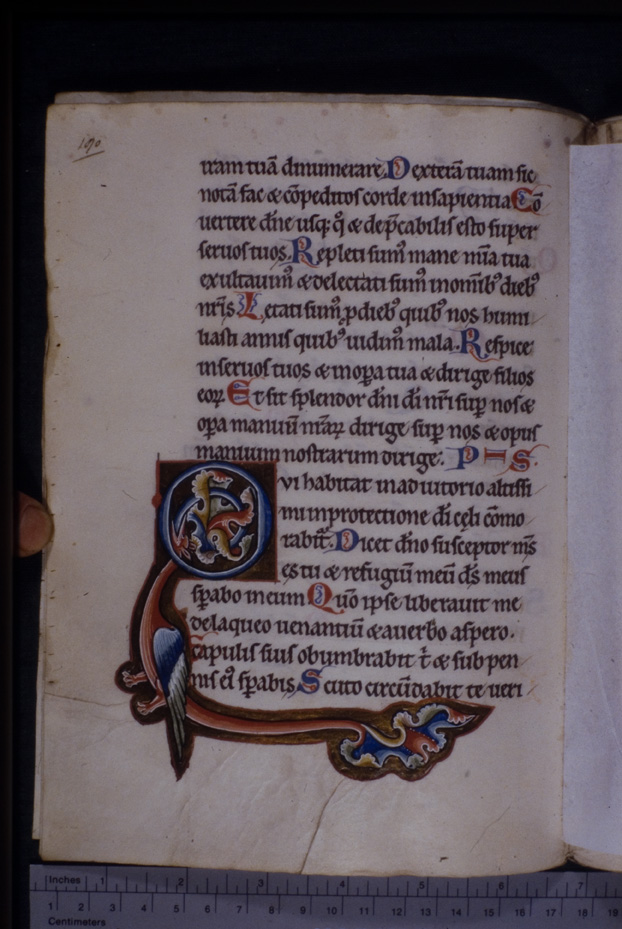 190
iram tuā dinumerare. Dexterā tuam sic
notā fac & cōpeditos corde in sapientia Cō
uertere dn̄e usq; qͦ & dep̄cabilis esto super
seruos tuos. Repleti sumꝰ mane mīa tua
exultauimꝰ & delectati sumꝰ in omībꝰ diebꝰ
nr̄is Letati sumꝰ ꝓ diebꝰ quibꝰ nos humi
liasti annis quibꝰ uidimꝰ mala. Respice
in seruos tuos & in oꝑa tua & dirige filios
eoꝝ Et sit splendor dn̄i dī nr̄i suꝑ nos &
oꝑa manuū nr̄aꝝ dirige suꝑ nos & opus
manuum nostrarum dirige. P S.
Qvi habitat in adiutorio altissi
mi in protectione dī cęli cōmo
rabit᷑. Dicet dn̄o susceptor ms̄
es tu & refugiū meū ds̄ meus
sꝑabo in eum Quō ipse liberauit me
de laqueo uenantiū & a uerbo aspero.
Scapulis suis obumbrabit t̄ & sub pen
nis eiꝰ sꝑabis Scuto circūdabit te ueri
Inches 1 2 3 4 5 6 7
1 2 3 4 5 6 7 8 9 10 11 12 13 14 15 16 17 18 19
Centimeters